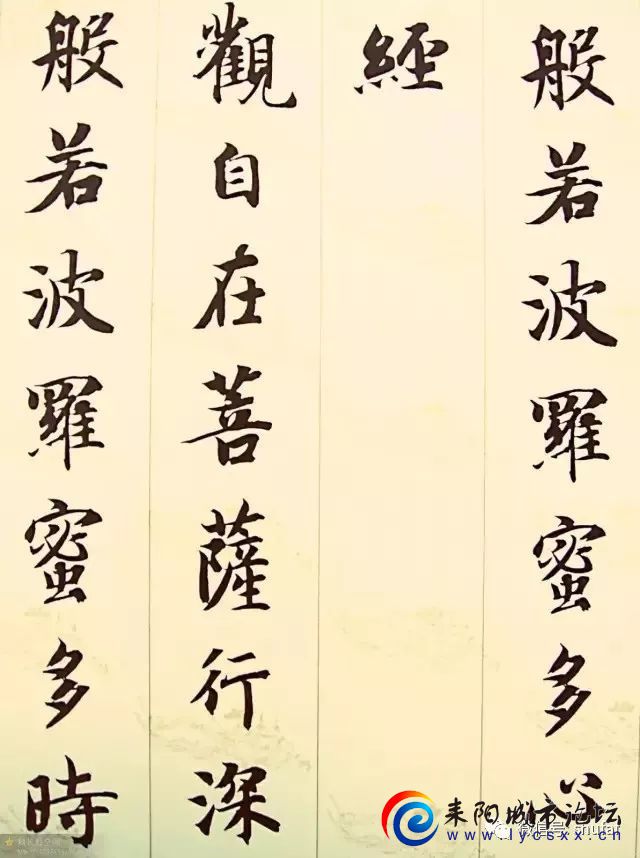 般若波羅蜜多心
經
觀自在菩薩行深
般若波羅蜜多時
耒阳城市论坛
www.lycsxx.cn